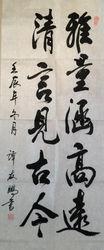 雅量涵高遠
清言見古今
壬辰年冬月 譚友鵬書